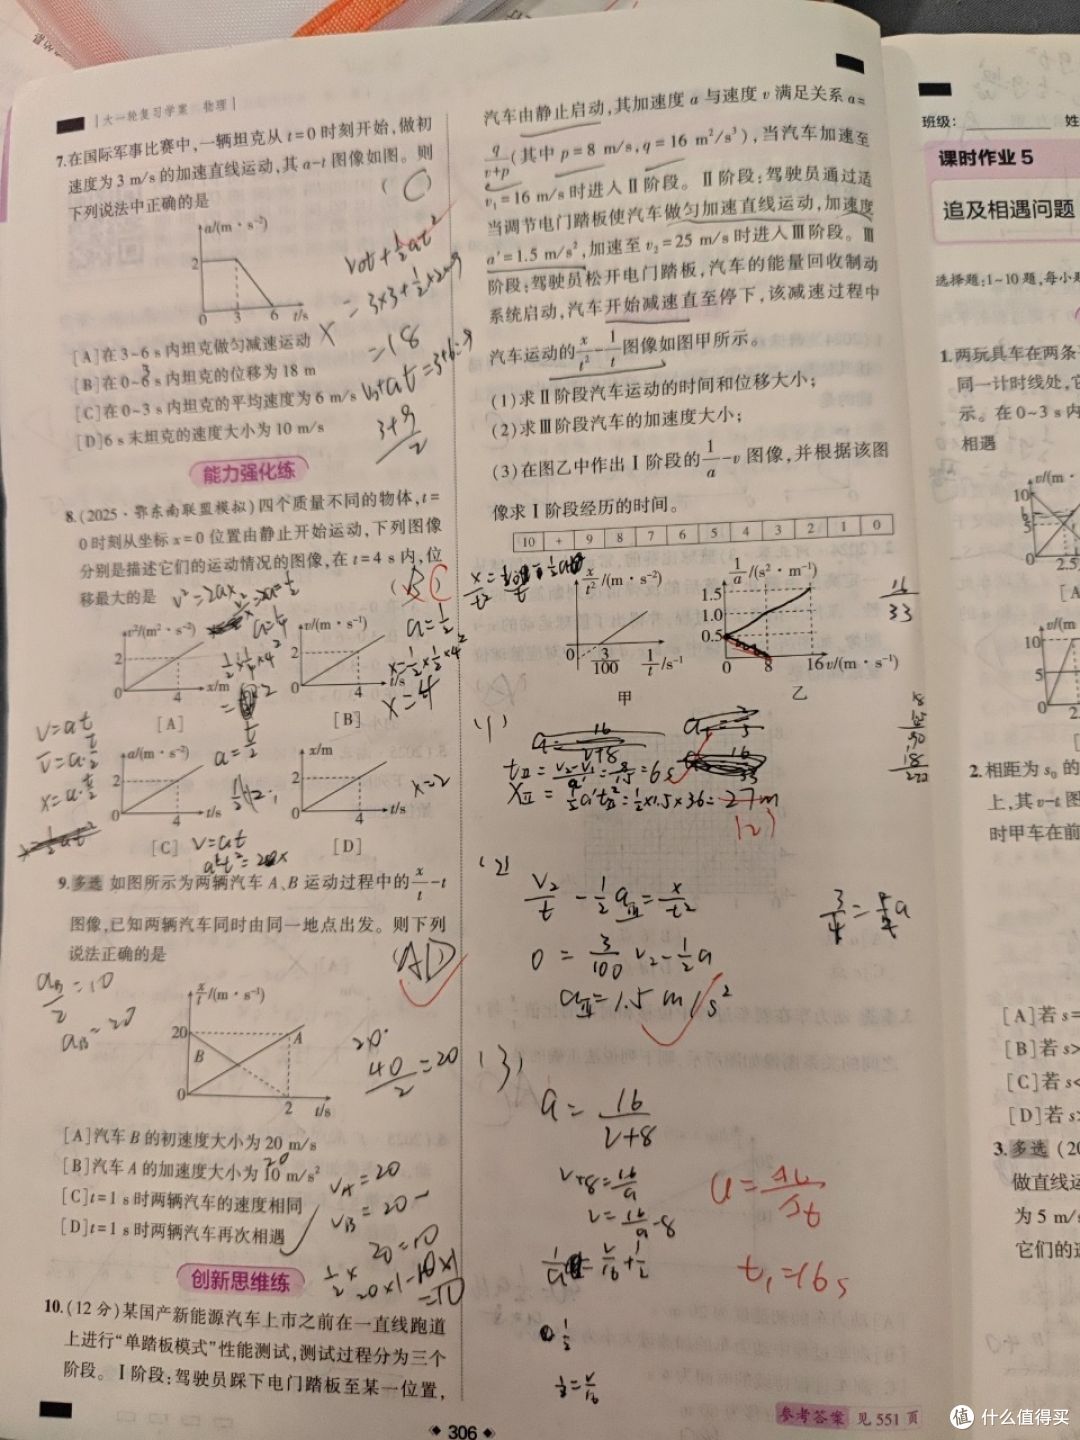 大一轮复习学案 物理
7.在国际军事比赛中,一辆坦克从t=0时刻开始,做初
速度为3 m/s的加速直线运动,其a-t图像如图。则
下列说法中正确的是
(C)
a/(m·s⁻²)
2
0 3 6 t/s
v₀t+½at²
=3×3+½×2×9
x
=18
[A]在3~6 s内坦克做匀减速运动
[B]在0~6 s内坦克的位移为18 m
3
[C]在0~3 s内坦克的平均速度为6 m/s
v₀+at=3+6=9
[D]6 s末坦克的速度大小为10 m/s
3+9
2
能力强化练
8.(2025·鄂东南联盟模拟)四个质量不同的物体,t=
0时刻从坐标x=0位置由静止开始运动,下列图像
分别是描述它们的运动情况的图像,在t=4 s内,位
移最大的是
(B C
v²=2ax
v²/(m²·s⁻²)
2
0 4 x/m
[A]
a=¼
v/(m·s⁻¹)
2
0 4 t/s
[B]
a=½
x=½×½×4²
x=4
v=at
x=a·
a/(m·s⁻²)
2
0 4 t/s
[C]
v=at
x/m
2
0 4 t/s
[D]
x=2
9.多选 如图所示为两辆汽车A、B运动过程中的x/t-t
图像,已知两辆汽车同时由同一地点出发。则下列
说法正确的是
(AD)
aB/2=10
aB=20
x/t/(m·s⁻¹)
20
B
A
0 2 t/s
40/2=20
[A]汽车B的初速度大小为20 m/s
[B]汽车A的加速度大小为10 m/s²
20
[C]t=1 s时两辆汽车的速度相同
[D]t=1 s时两辆汽车再次相遇
vA=20
vB=20-
创新思维练
10.(12分)某国产新能源汽车上市之前在一直线跑道
上进行“单踏板模式”性能测试,测试过程分为三个
阶段。Ⅰ阶段:驾驶员踩下电门踏板至某一位置,
306
汽车由静止启动,其加速度a与速度v满足关系a=
q/(v+p)(其中p=8 m/s,q=16 m²/s³),当汽车加速至
v₁=16 m/s时进入Ⅱ阶段。Ⅱ阶段:驾驶员通过适
当调节电门踏板使汽车做匀加速直线运动,加速度
a'=1.5 m/s²,加速至v₂=25 m/s时进入Ⅲ阶段。Ⅲ
阶段:驾驶员松开电门踏板,汽车的能量回收制动
系统启动,汽车开始减速直至停下,该减速过程中
汽车运动的x/t²-1/t图像如图甲所示。
(1)求Ⅱ阶段汽车运动的时间和位移大小;
(2)求Ⅲ阶段汽车的加速度大小;
(3)在图乙中作出Ⅰ阶段的1/a-v图像,并根据该图
像求Ⅰ阶段经历的时间。
10 + 9 8 7 6 5 4 3 2 1 0
x/t²/(m·s⁻²)
0 3/100 1/t/s⁻¹
甲
1/a/(s²·m⁻¹)
1.5
1.0
0.5
0 8 16 v/(m·s⁻¹)
乙
16
33
(1)
tⅡ=(v₂-v₁)/a'=9/1.5=6s
xⅡ=½a'tⅡ²=½×1.5×36=27m
(2)
(2)
v₂/t-½aⅢ=x/t²
0=3/100 v₂-½a
aⅢ=1.5 m/s²
(3)
a=16/(v+8)
v+8=16/a
v=16/a-8
1/a=v/16+½
½=v/16
a=Δv/Δt
t₁=16s
参考答案 见551页
班级: 姓
课时作业5
追及相遇问题
选择题:1~10题,每小是
1.两玩具车在两条
同一计时线处,它
示。在0~3 s内
相遇
v/(m
10
5
0 2.5
[A
v/(m
10
5
0 2
[C
2.相距为s₀的
上,其v-t图
时甲车在前
[A]若s=
[B]若s>
[C]若s<
[D]若s>
3.多选 (20
做直线运
为5 m/s
它们的运
值 什么值得买